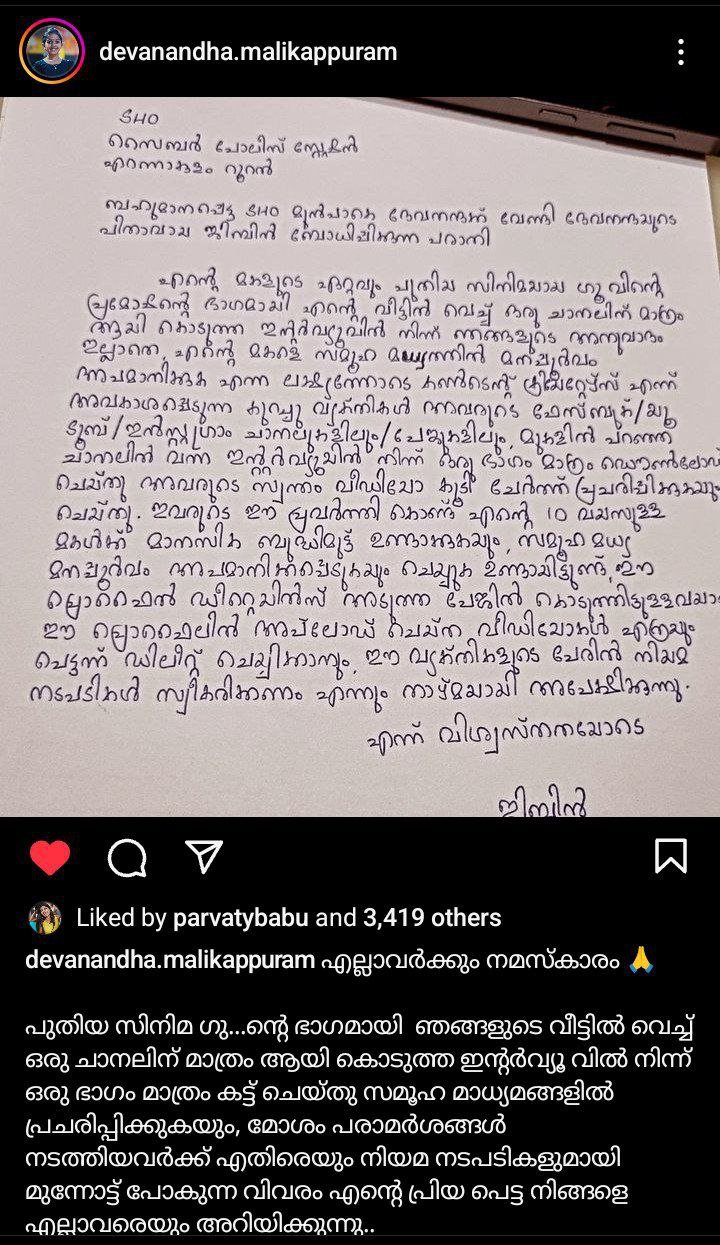 devanandha.malikappuram
SHO
സൈബർ പോലീസ് സ്റ്റേഷൻ
എറണാകുളം റൂറൽ
ബഹുമാനപ്പെട്ട SHO മുൻപാകെ ദേവനന്ദക്ക് വേണ്ടി ദേവനന്ദയുടെ
പിതാവായ ജിബിൻ ബോധിപ്പിക്കുന്ന പരാതി
എന്റെ മകളുടെ ഏറ്റവും പുതിയ സിനിമയായ ഗു വിന്റെ
പ്രമോഷന്റെ ഭാഗമായി എന്റെ വീട്ടിൽ വെച്ച് ഒരു ചാനലിന് മാത്രം
ആയി കൊടുത്ത ഇന്റർവ്യൂവിൽ നിന്ന് ഞങ്ങളുടെ അനുവാദം
ഇല്ലാതെ, എന്റെ മകളെ സമൂഹ മധ്യത്തിൽ മനപ്പൂർവം
അപമാനിക്കുക എന്ന ലക്ഷ്യത്തോടെ കണ്ടെന്റ് ക്രിയേറ്റേഴ്സ് എന്ന്
അവകാശപ്പെടുന്ന കുറച്ചു വ്യക്തികൾ അവരുടെ ഫേസ്ബുക്/യൂ
ട്യൂബ്/ഇൻസ്റ്റഗ്രാം ചാനലുകളിലും/പേജുകളിലും, മുകളിൽ പറഞ്ഞ
ചാനലിൽ വന്ന ഇന്റർവ്യൂയിൽ നിന്ന് ഒരു ഭാഗം മാത്രം ഡൌൺലോഡ്
ചെയ്തു അവരുടെ സ്വന്തം വീഡിയോ കൂടി ചേർത്ത് പ്രചരിപ്പിക്കുകയും
ചെയ്തു. ഇവരുടെ ഈ പ്രവർത്തി കൊണ്ട് എന്റെ 10 വയസുള്ള
മകൾക്ക് മാനസിക ബുദ്ധിമുട്ട് ഉണ്ടാക്കുകയും, സമൂഹ മധ്യ
മനപ്പൂർവം അപമാനിക്കപ്പെടുകയും ചെയ്യുക ഉണ്ടായിട്ടുണ്ട്, ഈ
പ്രൊഫൈൽ ഡീറ്റെയിൽസ് അടുത്ത പേജിൽ കൊടുത്തിട്ടുള്ളവയാ
ഈ പ്രൊഫൈലിൽ അപ്‌ലോഡ് ചെയ്ത വീഡിയോകൾ എത്രയും
പെട്ടന്ന് ഡിലീറ്റ് ചെയ്യിക്കാനും, ഈ വ്യക്തികളുടെ പേരിൽ നിയമ
നടപടികൾ സ്വീകരിക്കണം എന്നും താഴ്മയായി അപേക്ഷിക്കുന്നു.
എന്ന് വിശ്വസ്തതയോടെ
ജിബിൻ
Liked by parvatybabu and 3,419 others
devanandha.malikappuram എല്ലാവർക്കും നമസ്കാരം 🙏
പുതിയ സിനിമ ഗു...ന്റെ ഭാഗമായി ഞങ്ങളുടെ വീട്ടിൽ വെച്ച്
ഒരു ചാനലിന് മാത്രം ആയി കൊടുത്ത ഇന്റർവ്യൂ വിൽ നിന്ന്
ഒരു ഭാഗം മാത്രം കട്ട് ചെയ്തു സമൂഹ മാധ്യമങ്ങളിൽ
പ്രചരിപ്പിക്കുകയും, മോശം പരാമർശങ്ങൾ
നടത്തിയവർക്ക് എതിരെയും നിയമ നടപടികളുമായി
മുന്നോട്ട് പോകുന്ന വിവരം എന്റെ പ്രിയ പെട്ട നിങ്ങളെ
എല്ലാവരെയും അറിയിക്കുന്നു..